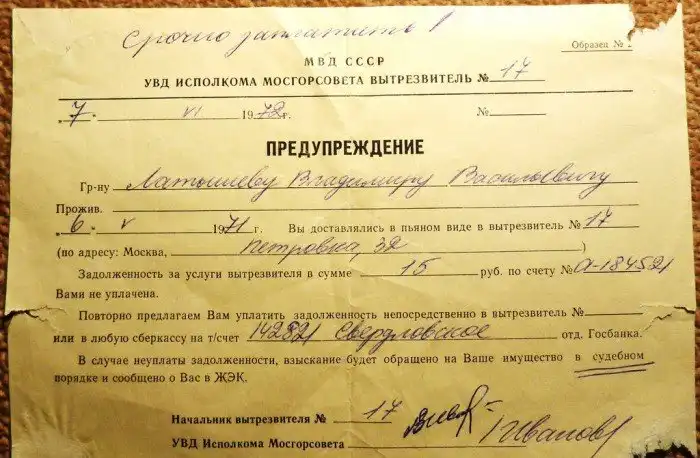 Срочно заплатить!
Образец №
МВД СССР
УВД ИСПОЛКОМА МОСГОРСОВЕТА ВЫТРЕЗВИТЕЛЬ № 17
„7" VI 1972г. №
ПРЕДУПРЕЖДЕНИЕ
Гр-ну Латышеву Владимиру Васильевичу
Прожив.
„6" V 1971 г. Вы доставлялись в пьяном виде в вытрезвитель № 17
(по адресу: Москва, Петровка, 32)
Задолженность за услуги вытрезвителя в сумме 15 руб. по счету № А-184521
Вами не уплачена.
Повторно предлагаем Вам уплатить задолженность непосредственно в вытрезвитель №
или в любую сберкассу на т/счет 142821 Свердловское отд. Госбанка.
В случае неуплаты задолженности, взыскание будет обращено на Ваше имущество в судебном
порядке и сообщено о Вас в ЖЭК.
Начальник вытрезвителя № 17
УВД Исполкома Мосгорсовета Иванов